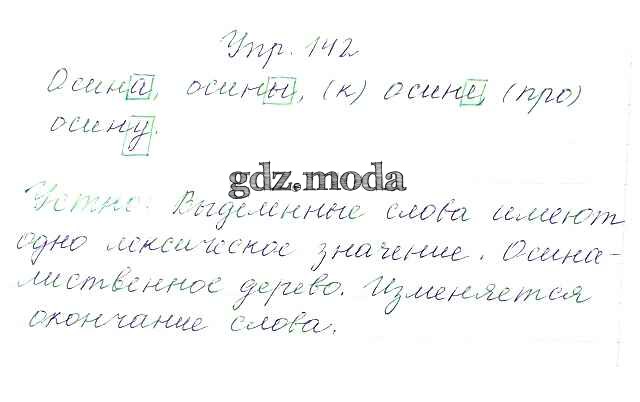 Упр. 142
Осина, осины, (к) осине, (про)
осину.
gdz.moda
Устно. Выделенные слова имеют
одно лексическое значение. Осина-
лиственное дерево. Изменяется
окончание слова.